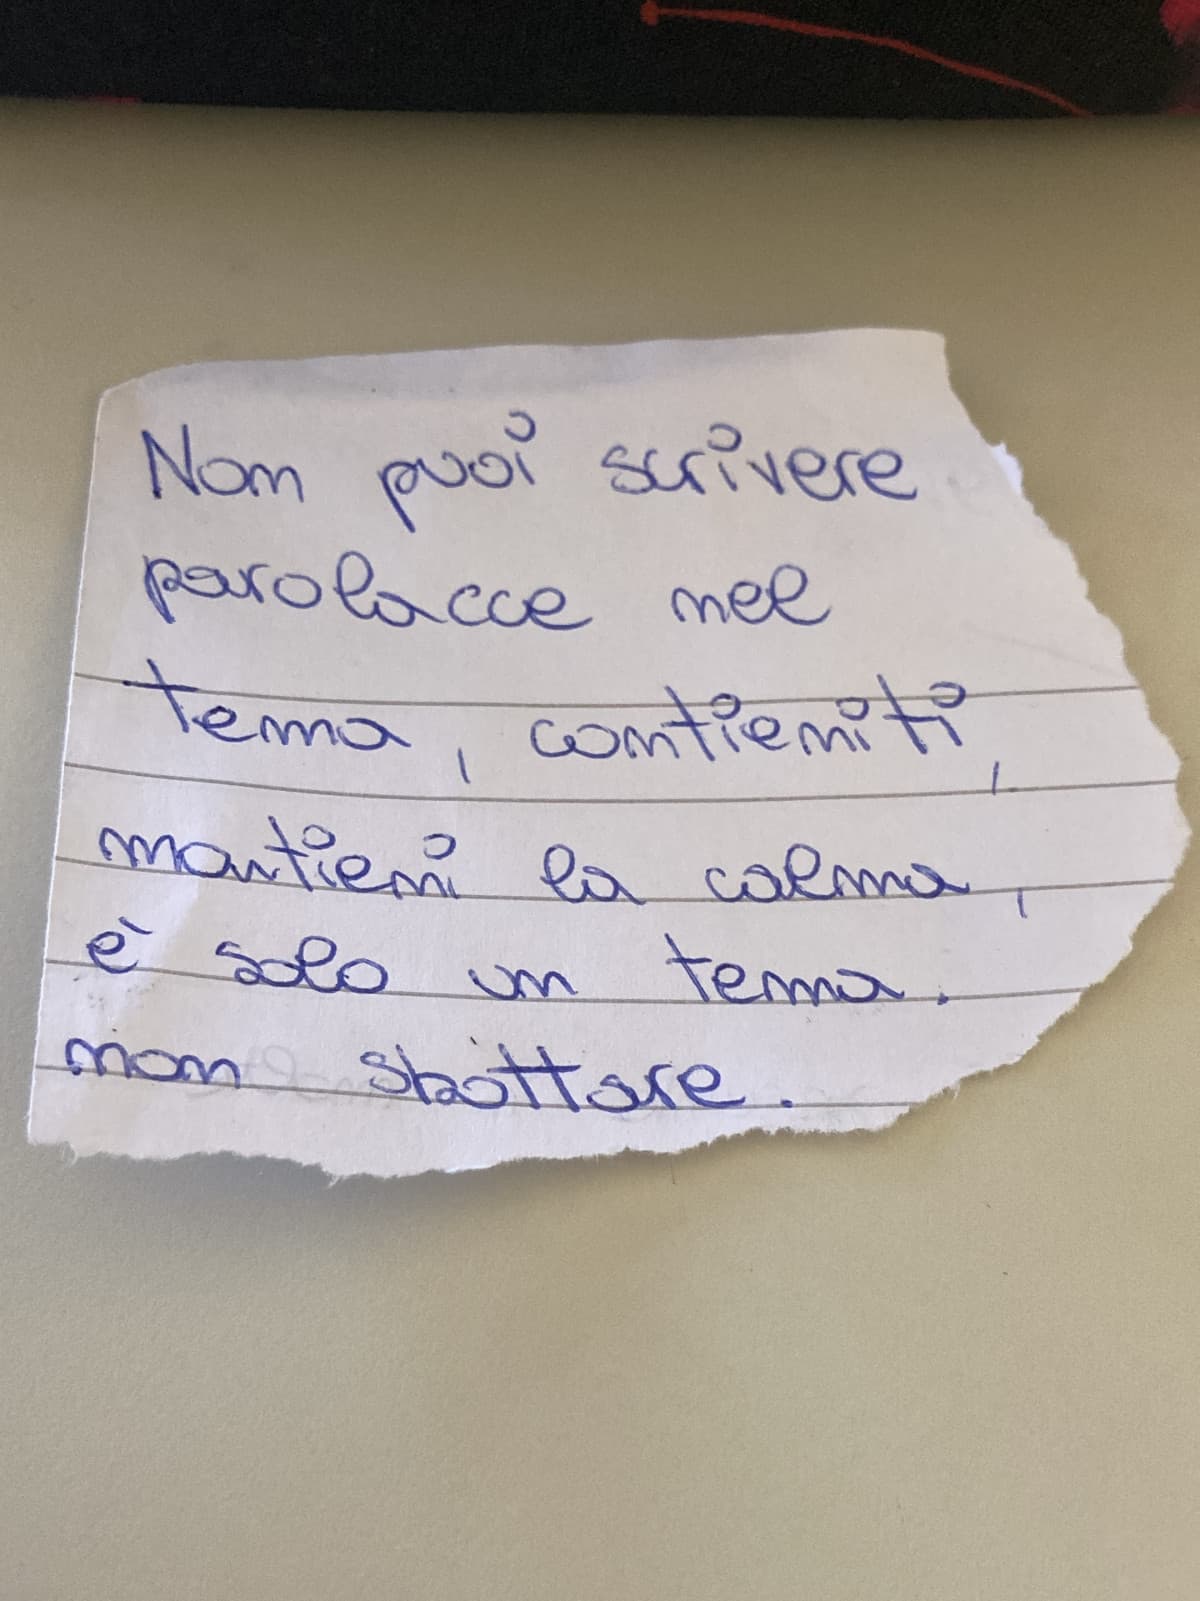 Non puoi scrivere
parolacce nel
tema, contieniti,
mantieni la calma,
è solo un tema.
non sbottare.